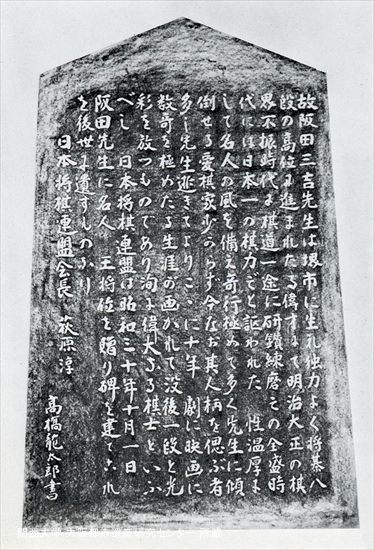 故阪田三吉先生は堺市に生れ独力よく将棊八
段の高位に進まれたる偉才にて明治大正の棋
界不振時代に棋道一途に研鑽練磨その全盛時
代には日本一の棋力だと謳われた 性温厚に
して名人の風を備え奇行極めて多く先生に傾
倒せる愛棋家少のらず今なお其人柄を偲ぶ者
多し先生逝きてよりここに十年 劇に映画に
数奇を極めたる生涯の画かれて没後一段と光
彩を放つものであり洵に偉大なる棋士といふ
べし 日本将棋連盟は昭和三十年十月一日
阪田先生に名人 王将位を贈り碑を建てこれ
を後世に遺すものなり
日本将棋連盟会長 萩原淳
高橋龍太郎書